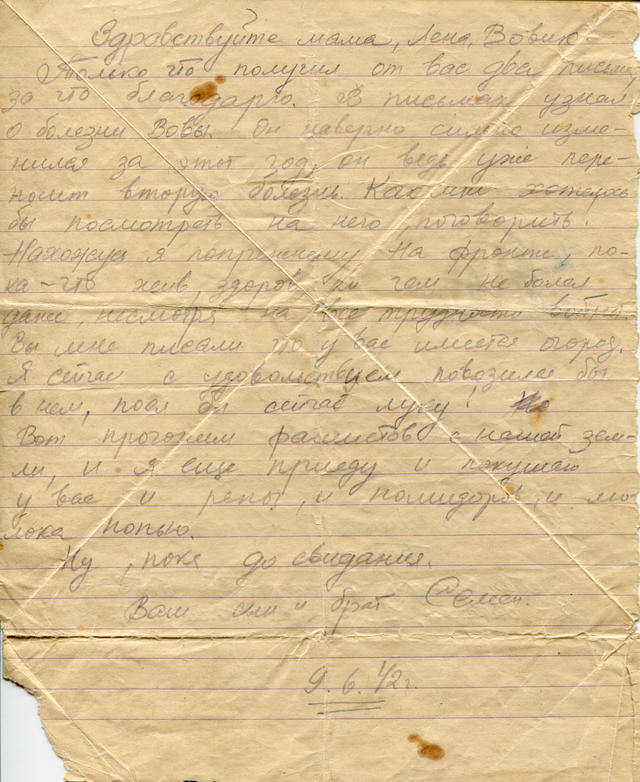 Здравствуйте мама, Лена, Вовик
Только что получил от вас два письма
за что благодарю. В письмах узнал
о болезни Вовы. Он наверно сильно изме-
нился за этот год, он ведь уже пере-
носит вторую болезнь. Как мне хотелось
бы посмотреть на него, поговорить!
Нахожусь я попрежнему на фронте, по-
ка-что жив, здоров, ни чем не болел
даже, несмотря на все трудности войны
Вы мне писали что у вас имеется огород.
Я сейчас с удовольствием повозился бы
в нем, поел бы сейчас луку!
Вот прогоним фашистов с нашей зем-
ли, и я еще приеду и покушаю
у вас и репы, и помидоров, и мо-
лока попью.
Ну, пока до свидания.
Ваш сын и брат Семен.
9.6.42г.